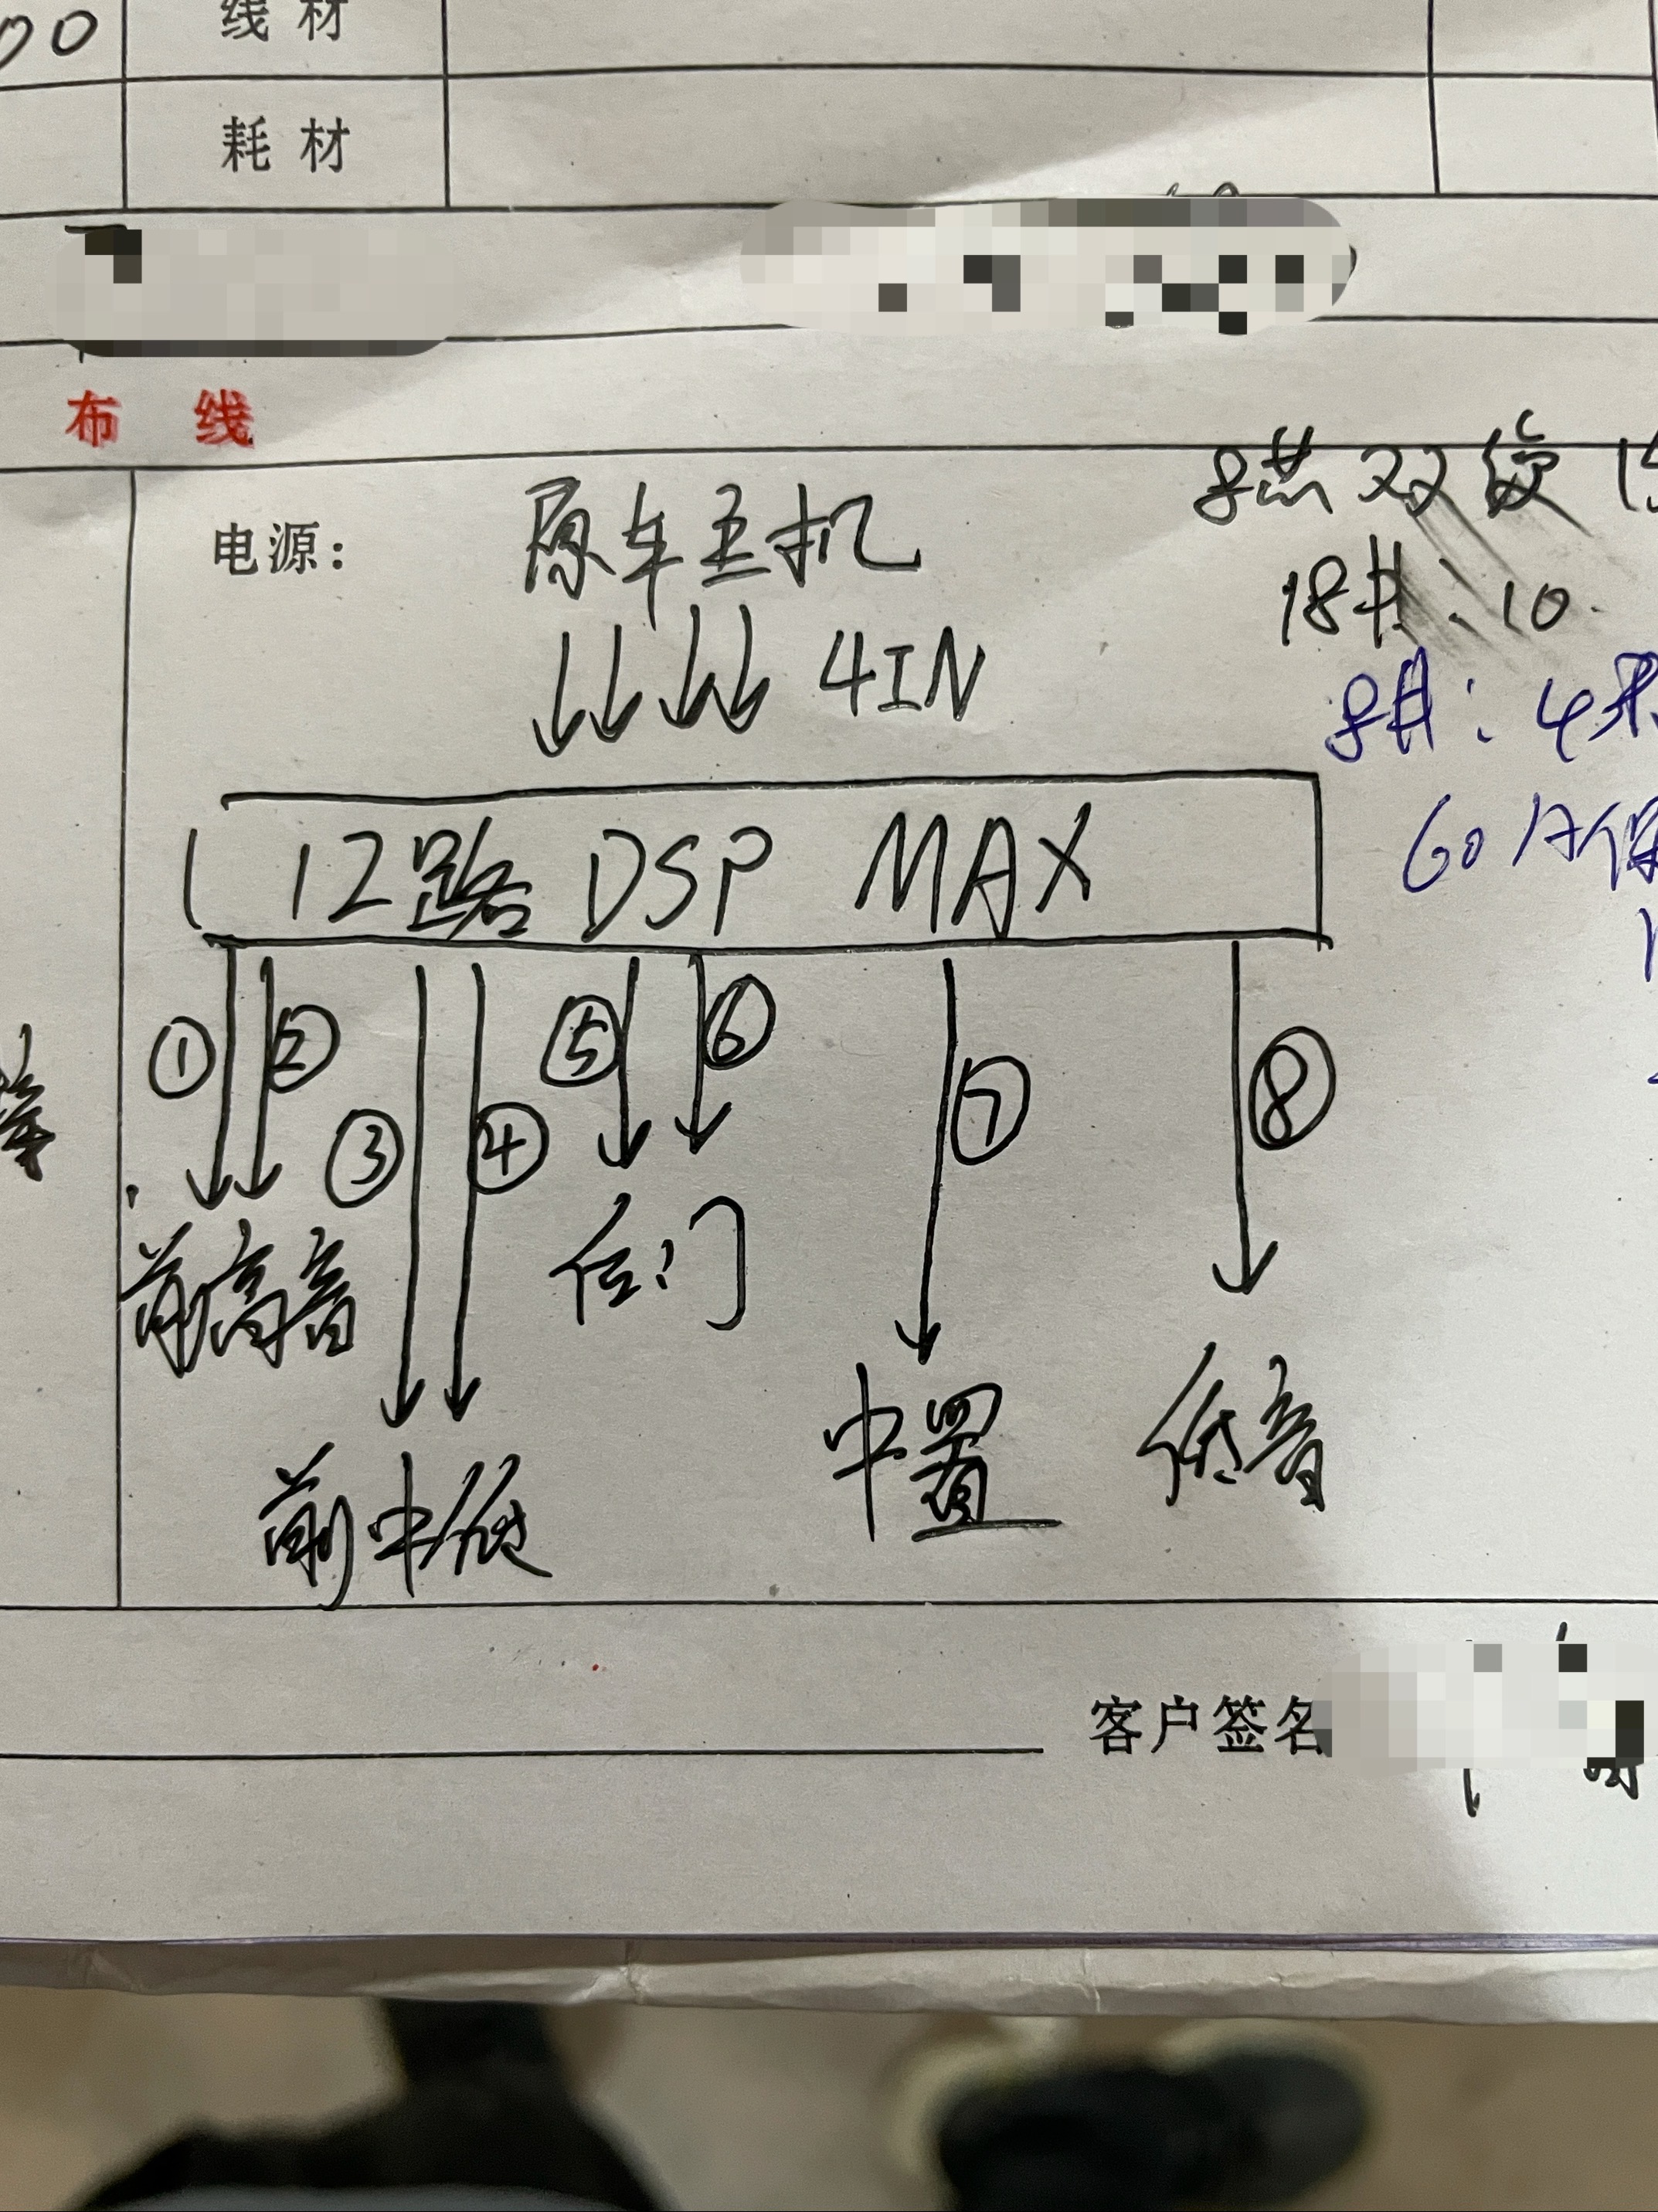 00 线材
耗材
布线
电源: 原车主机
↓↓↓↓ 4IN
12路 DSP MAX
① ② ③ ④ ⑤ ⑥ ⑦ ⑧
前高音
后门
前中低
中置
低音
8芯双绞
18#:10
8#:4米
60A保
客户签名